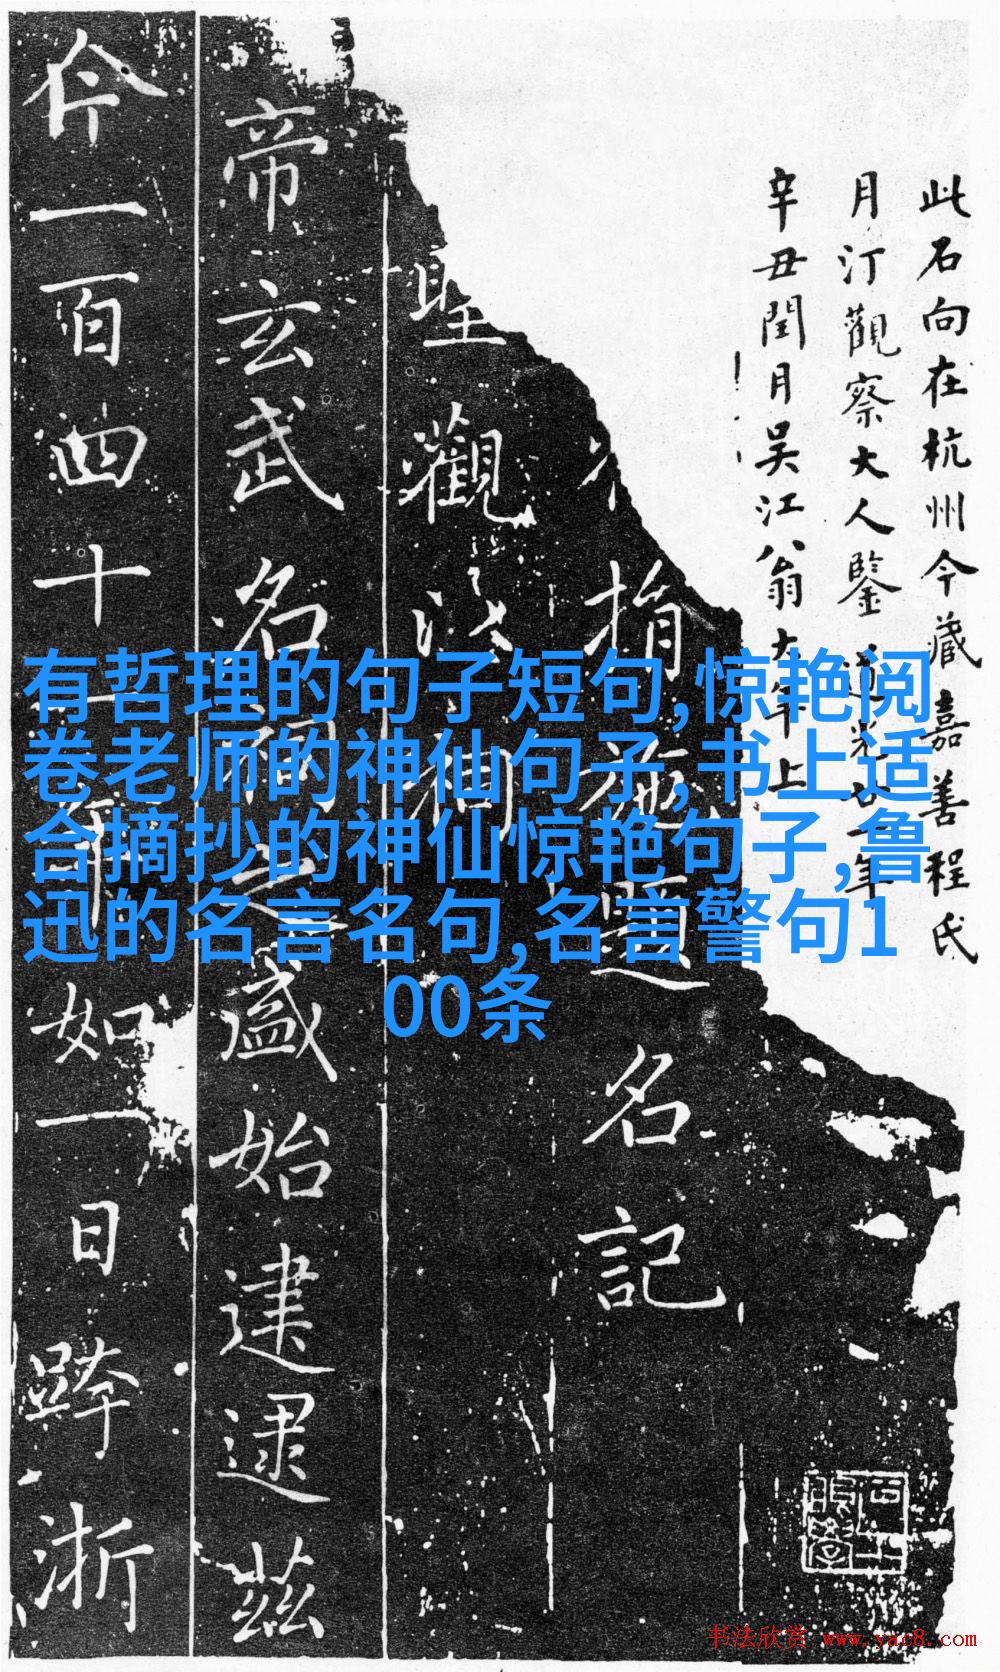 此石向在杭州今藏嘉善程氏
月汀觀察大人鑒道光廿一年
辛丑閏月吴江翁大年上
捐施題名記
聖觀法相
帝玄武名祠之盛始建逮茲
今一百四十年如一日跨浙
有哲理的句子短句,惊艳阅
卷老师的神仙句子,书上适
合摘抄的神仙惊艳句子,鲁
迅的名言名句,名言警句1
00条
书法欣赏 www.yac8.com